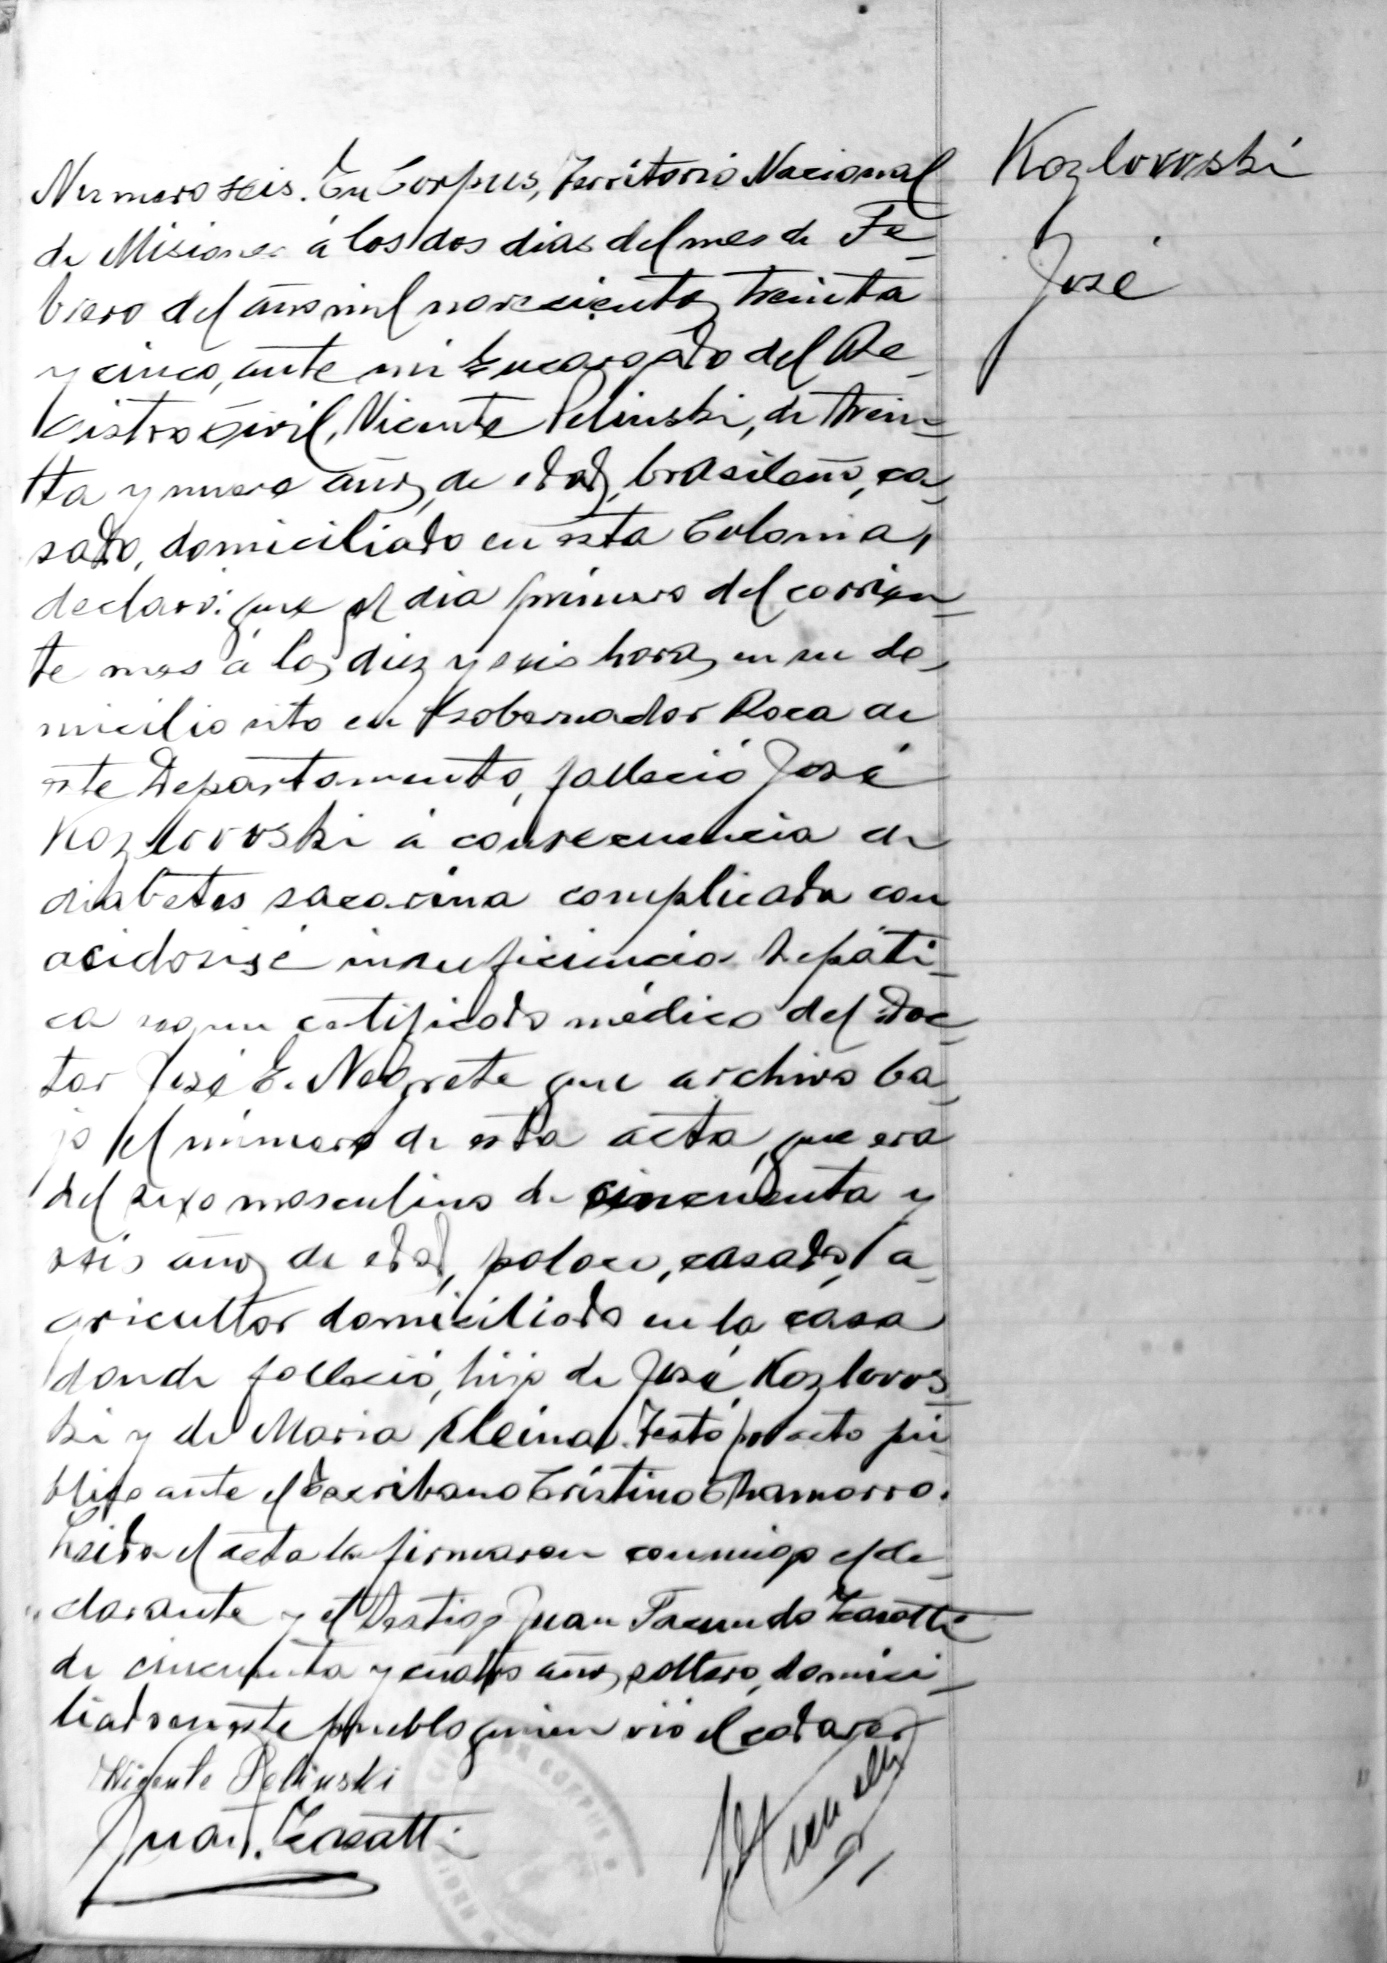 Numero seis. En Corpus, Territorio Nacional
de Misiones á los dos dias del mes de Fe-
brero del año mil novecientos treinta
y cinco, ante mi Encargado del Re-
gistro Civil, Vicente Pelinski, de trein-
ta y nueve años de edad, brasileño, ca-
sado, domiciliado en esta Colonia,
declaró: que el dia primero del corrien-
te mes á las diez y seis horas en su do-
micilio sito en Gobernador Roca de
este Departamento, falleció José
Kozlovoski á consecuencia de
diabetes sacarina complicada con
acidosis é insuficiencia hepáti-
ca segun certificado médico del Doc-
tor José E. Negrete que archivo ba-
jo el número de esta acta, que era
del sexo masculino de cincuenta y
seis años de edad, polaco, casado, a-
gricultor domiciliado en la casa
donde falleció, hijo de José Kozlovos-
ki y de Maria Kleina. Testó por acto pú-
blico ante el Escribano Cristino Chamorro.
Leida el acta la firmaron conmigo el de-
clarante y el testigo Juan Facundo Zasatti
de cincuenta y cuatro años, soltero, domici-
liado en este pueblo quien vió el cadaver
Vicente Pelinski
Juan F. Zasatti
CORPUS
Kozlovoski
José